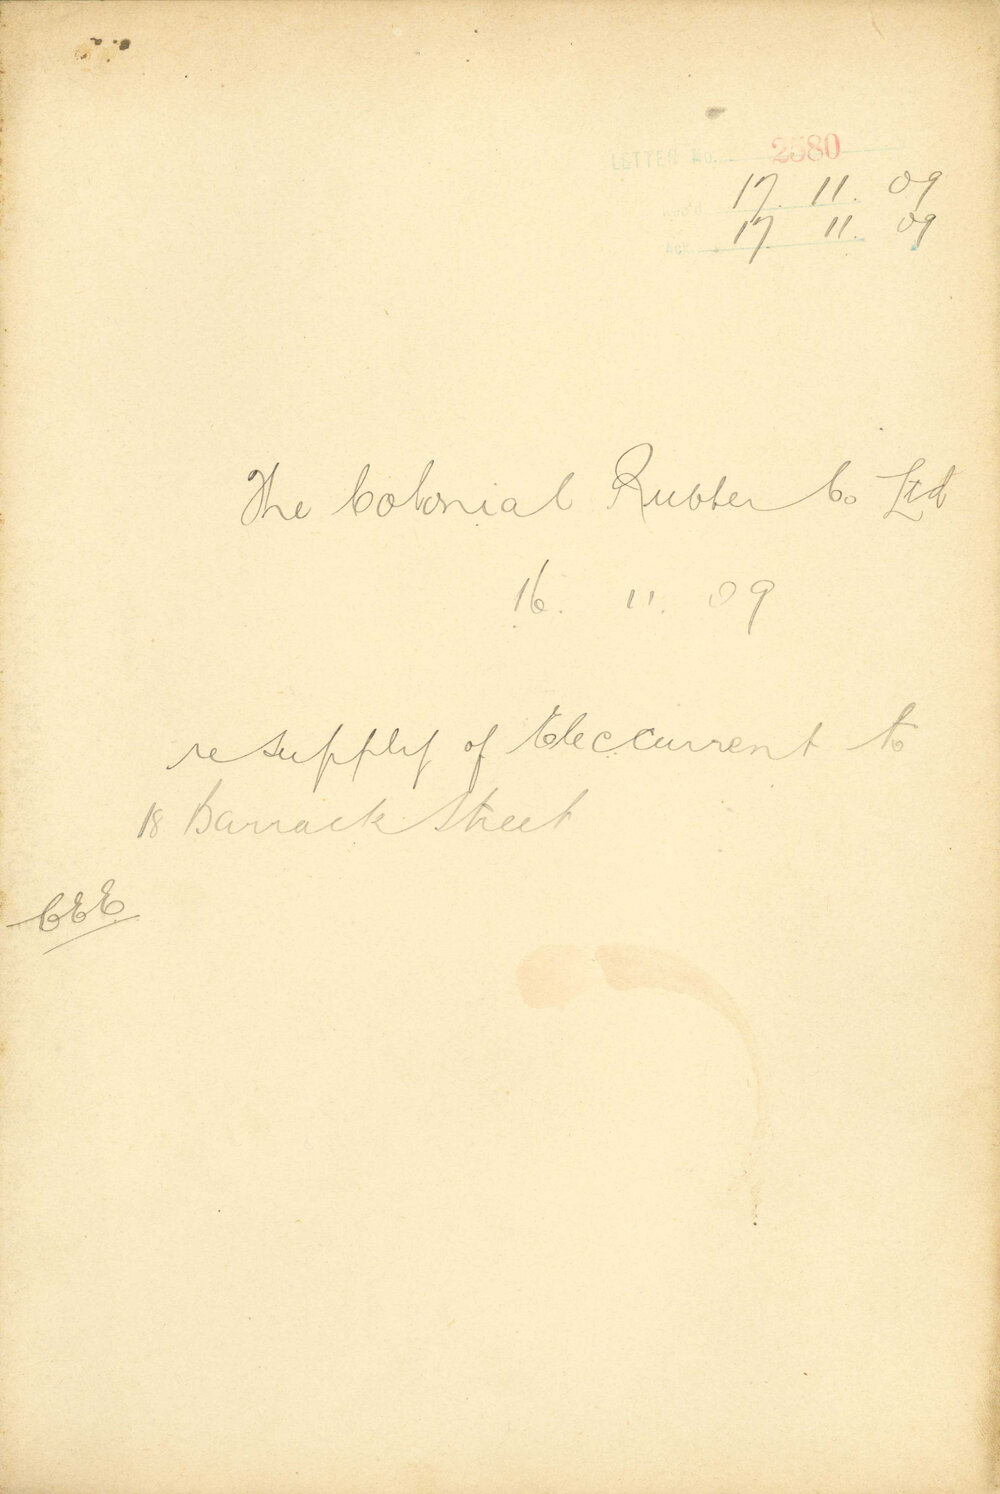 LETTER No. 2580
Rec'd 17. 11. 09
Ack. 17 11. 09
The Colonial Rubber Co Ltd
16. 11. 09
re supply of Elec current to
18 Barrack Street
CEE